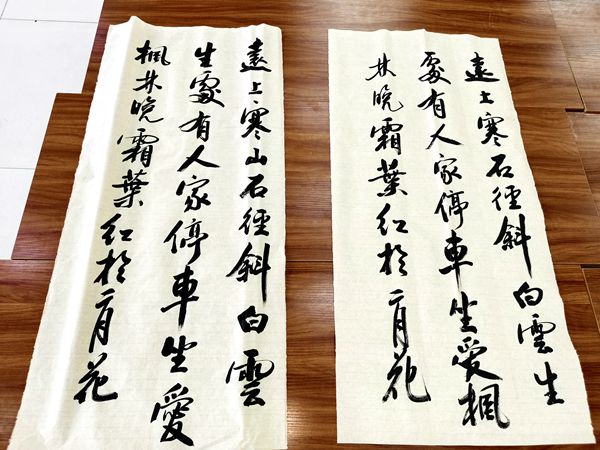 遠上寒山石徑斜白雲
生處有人家停車坐愛
楓林晚霜葉红於二月花
遠上寒石徑斜白雲生
處有人家停車坐愛楓
林晚霜葉红於二月花